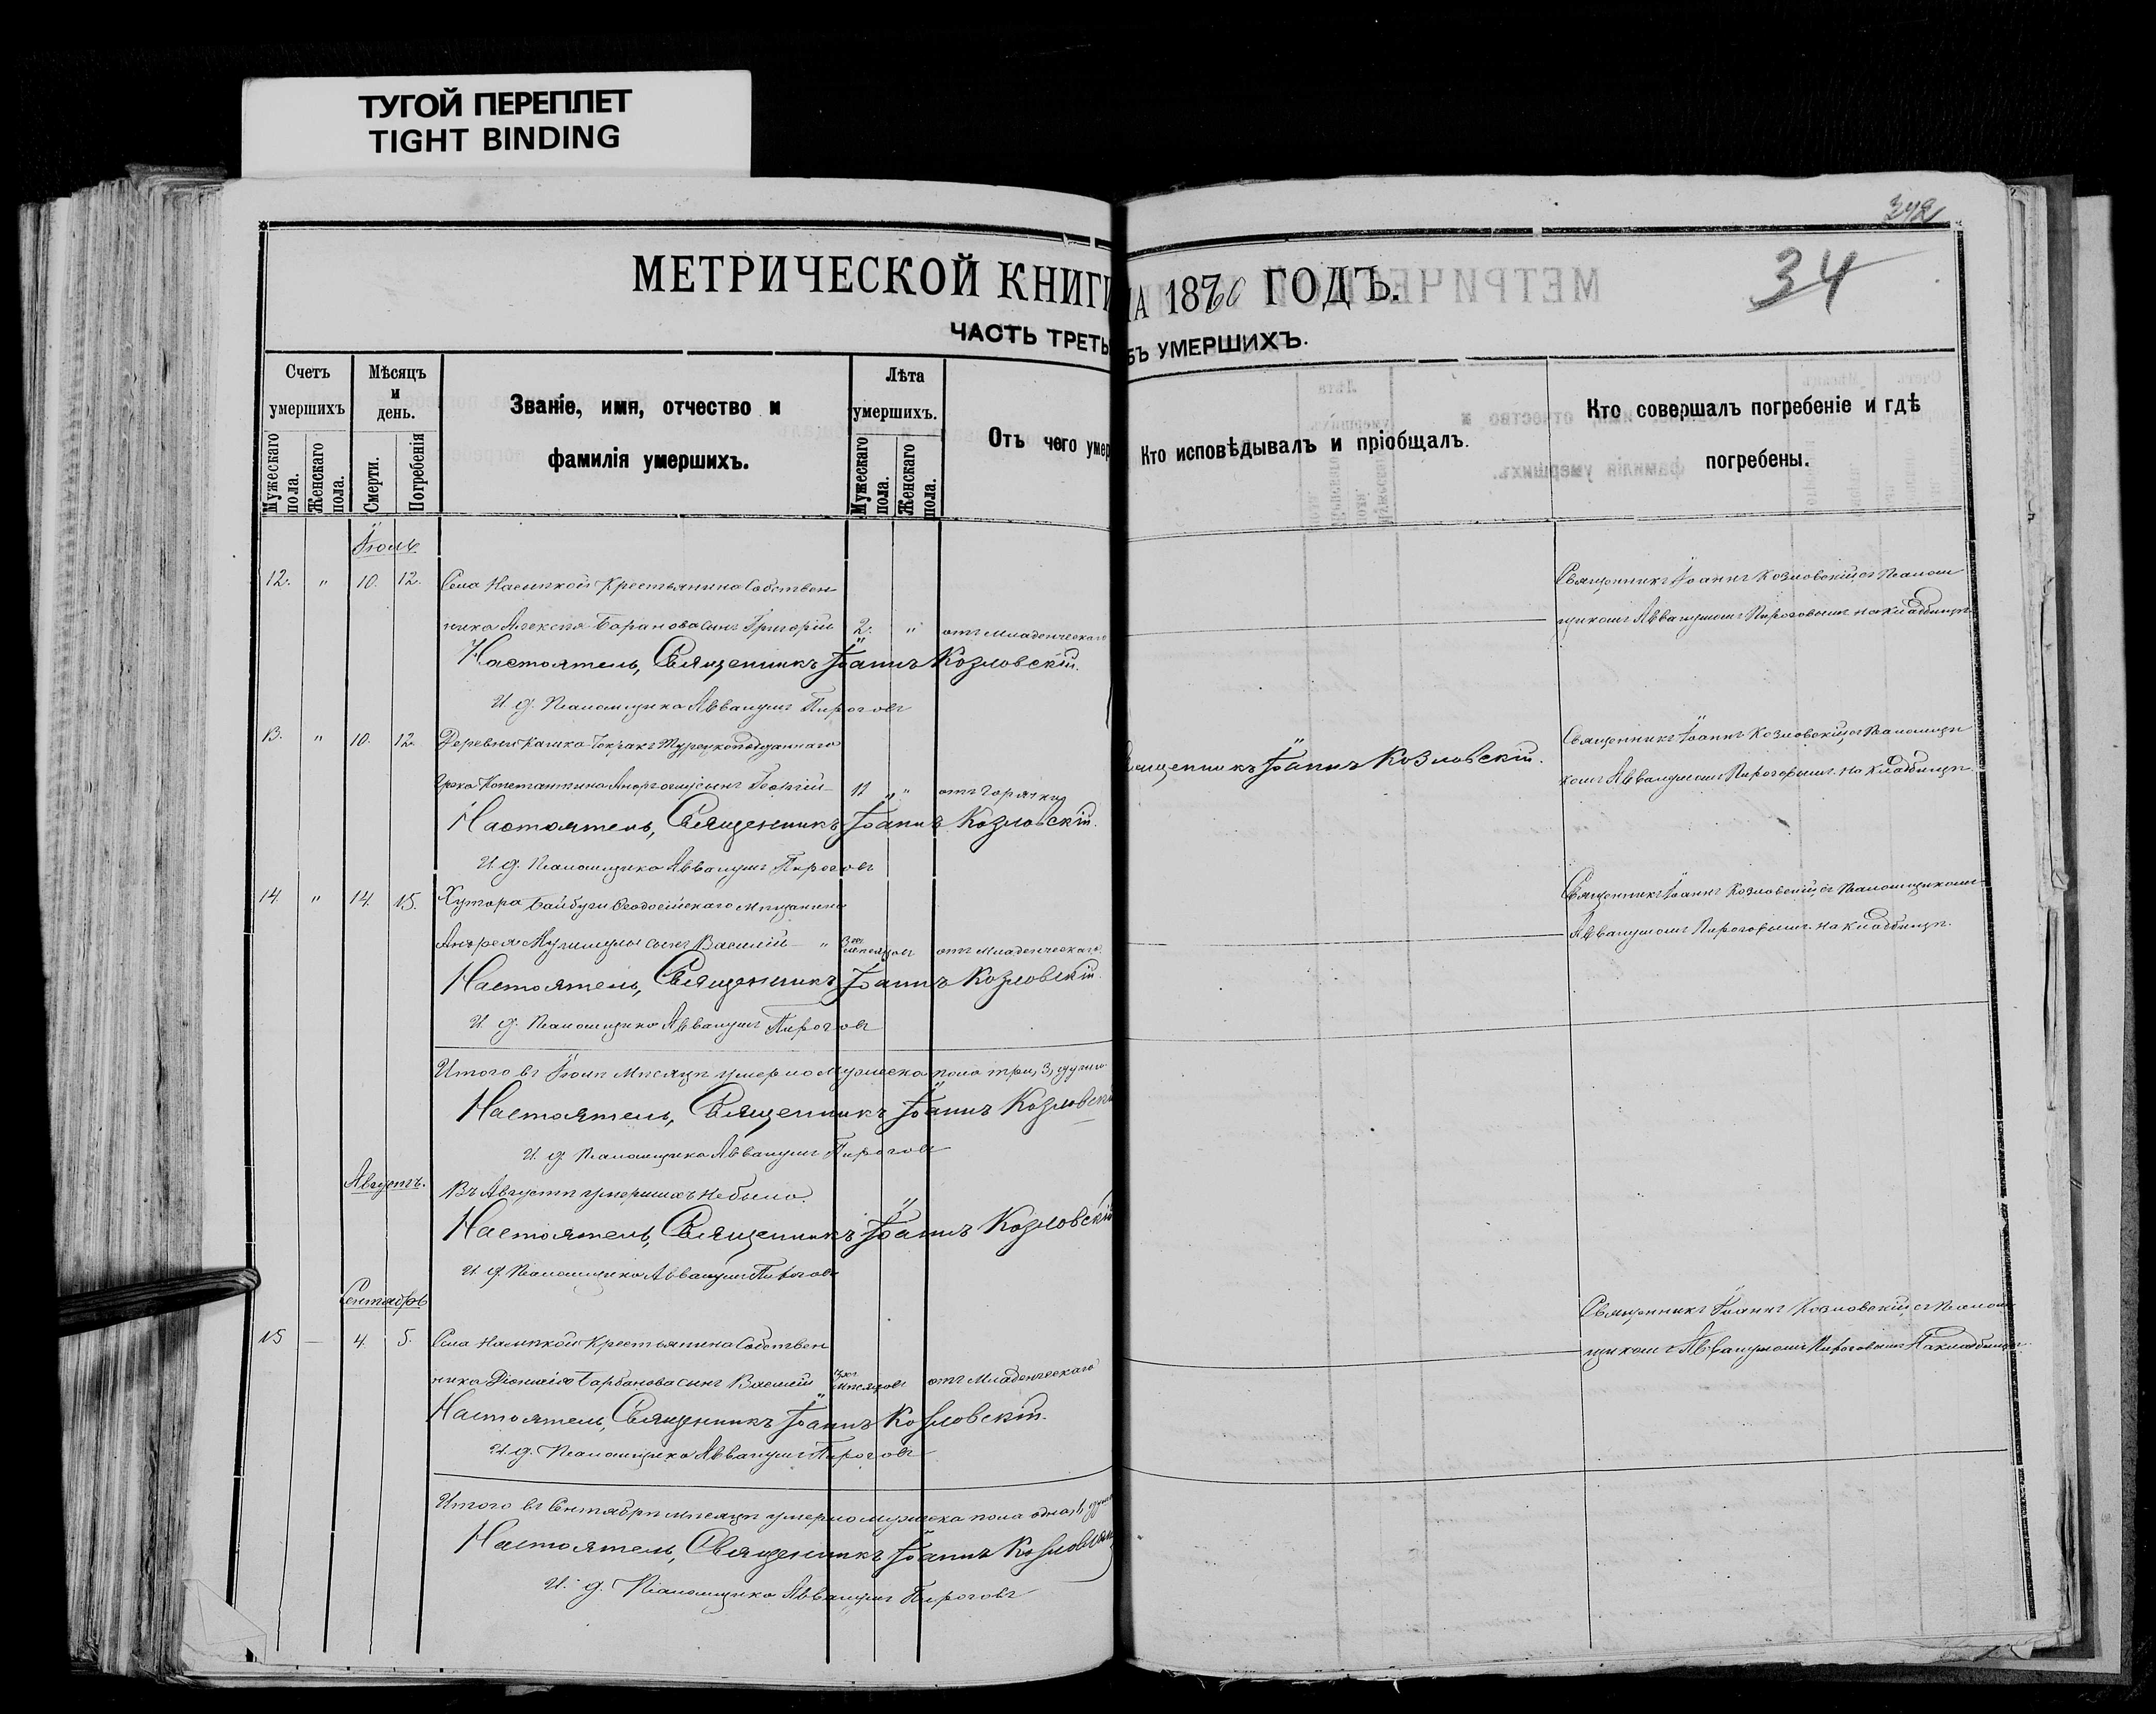 ТУГОЙ ПЕРЕПЛЕТ
TIGHT BINDING
342
34
МЕТРИЧЕСКОЙ КНИГИ НА 1870 ГОДЪ.
ЧАСТЬ ТРЕТЬ БЪ УМЕРШИХЪ.
Счетъ умершихъ
Мужескаго пола.
Женскаго пола.
Мѣсяцъ и день.
Смерти.
Погребенія
Званіе, имя, отчество и фамилія умершихъ.
Лѣта умершихъ.
Мужескаго пола.
Женскаго пола.
Отъ чего умер
Кто исповѣдывалъ и пріобщалъ.
Кто совершалъ погребеніе и гдѣ погребены.
Іюль
12. " 10. 12. Села Насыпкой Крестьянина Собствен-
ника Алексѣя Баранова сынъ Григорій 2. " отъ младенческаго
Священникъ Іоаннъ Козловскій съ Псалом
щикомъ Аввакумомъ Пироговымъ на кладбищѣ.
Настоятель, Священникъ Іоаннъ Козловскій.
И. д. Псаломщика Аввакумъ Пироговъ
13. " 10. 12. Деревни Турецкоподданнаго
Грека Константина сынъ Георгій 11 " отъ горячки
Священникъ Іоаннъ Козловскій.
Священникъ Іоаннъ Козловскій съ Псаломщи
комъ Аввакумомъ Пироговымъ на кладбищѣ.
Настоятель, Священникъ Іоаннъ Козловскій.
И. д. Псаломщика Аввакумъ Пироговъ
14. " 14. 15. Хутора Байбуги Ѳеодосійскаго Мѣщанина
Андрея сынъ Василій " 3хъ мѣсяцовъ отъ младенческаго
Священникъ Іоаннъ Козловскій съ Псаломщикомъ
Аввакумомъ Пироговымъ на кладбищѣ.
Настоятель, Священникъ Іоаннъ Козловскій.
И. д. Псаломщика Аввакумъ Пироговъ
Итого въ Іюлѣ Мѣсяцѣ умерло Мужеска пола три, 3, души
Настоятель, Священникъ Іоаннъ Козловскій
И. д. Псаломщика Аввакумъ Пироговъ
Августъ.
Въ Августѣ умершихъ не было.
Настоятель, Священникъ Іоаннъ Козловскій
И. д. Псаломщика Аввакумъ Пироговъ
Сентябрь
15 — 4. 5. Села Насыпкой Крестьянина Собствен
ника Діонисія Барбанова сынъ Василій мѣсяцовъ отъ младенческаго
Священникъ Іоаннъ Козловскій съ Псалом
щикомъ Аввакумомъ Пироговымъ на кладбищѣ.
Настоятель, Священникъ Іоаннъ Козловскій.
И. д. Псаломщика Аввакумъ Пироговъ
Итого въ Сентябрѣ мѣсяцѣ умерло мужеска пола одна, 1, душа
Настоятель, Священникъ Іоаннъ Козловскій
И. д. Псаломщика Аввакумъ Пироговъ